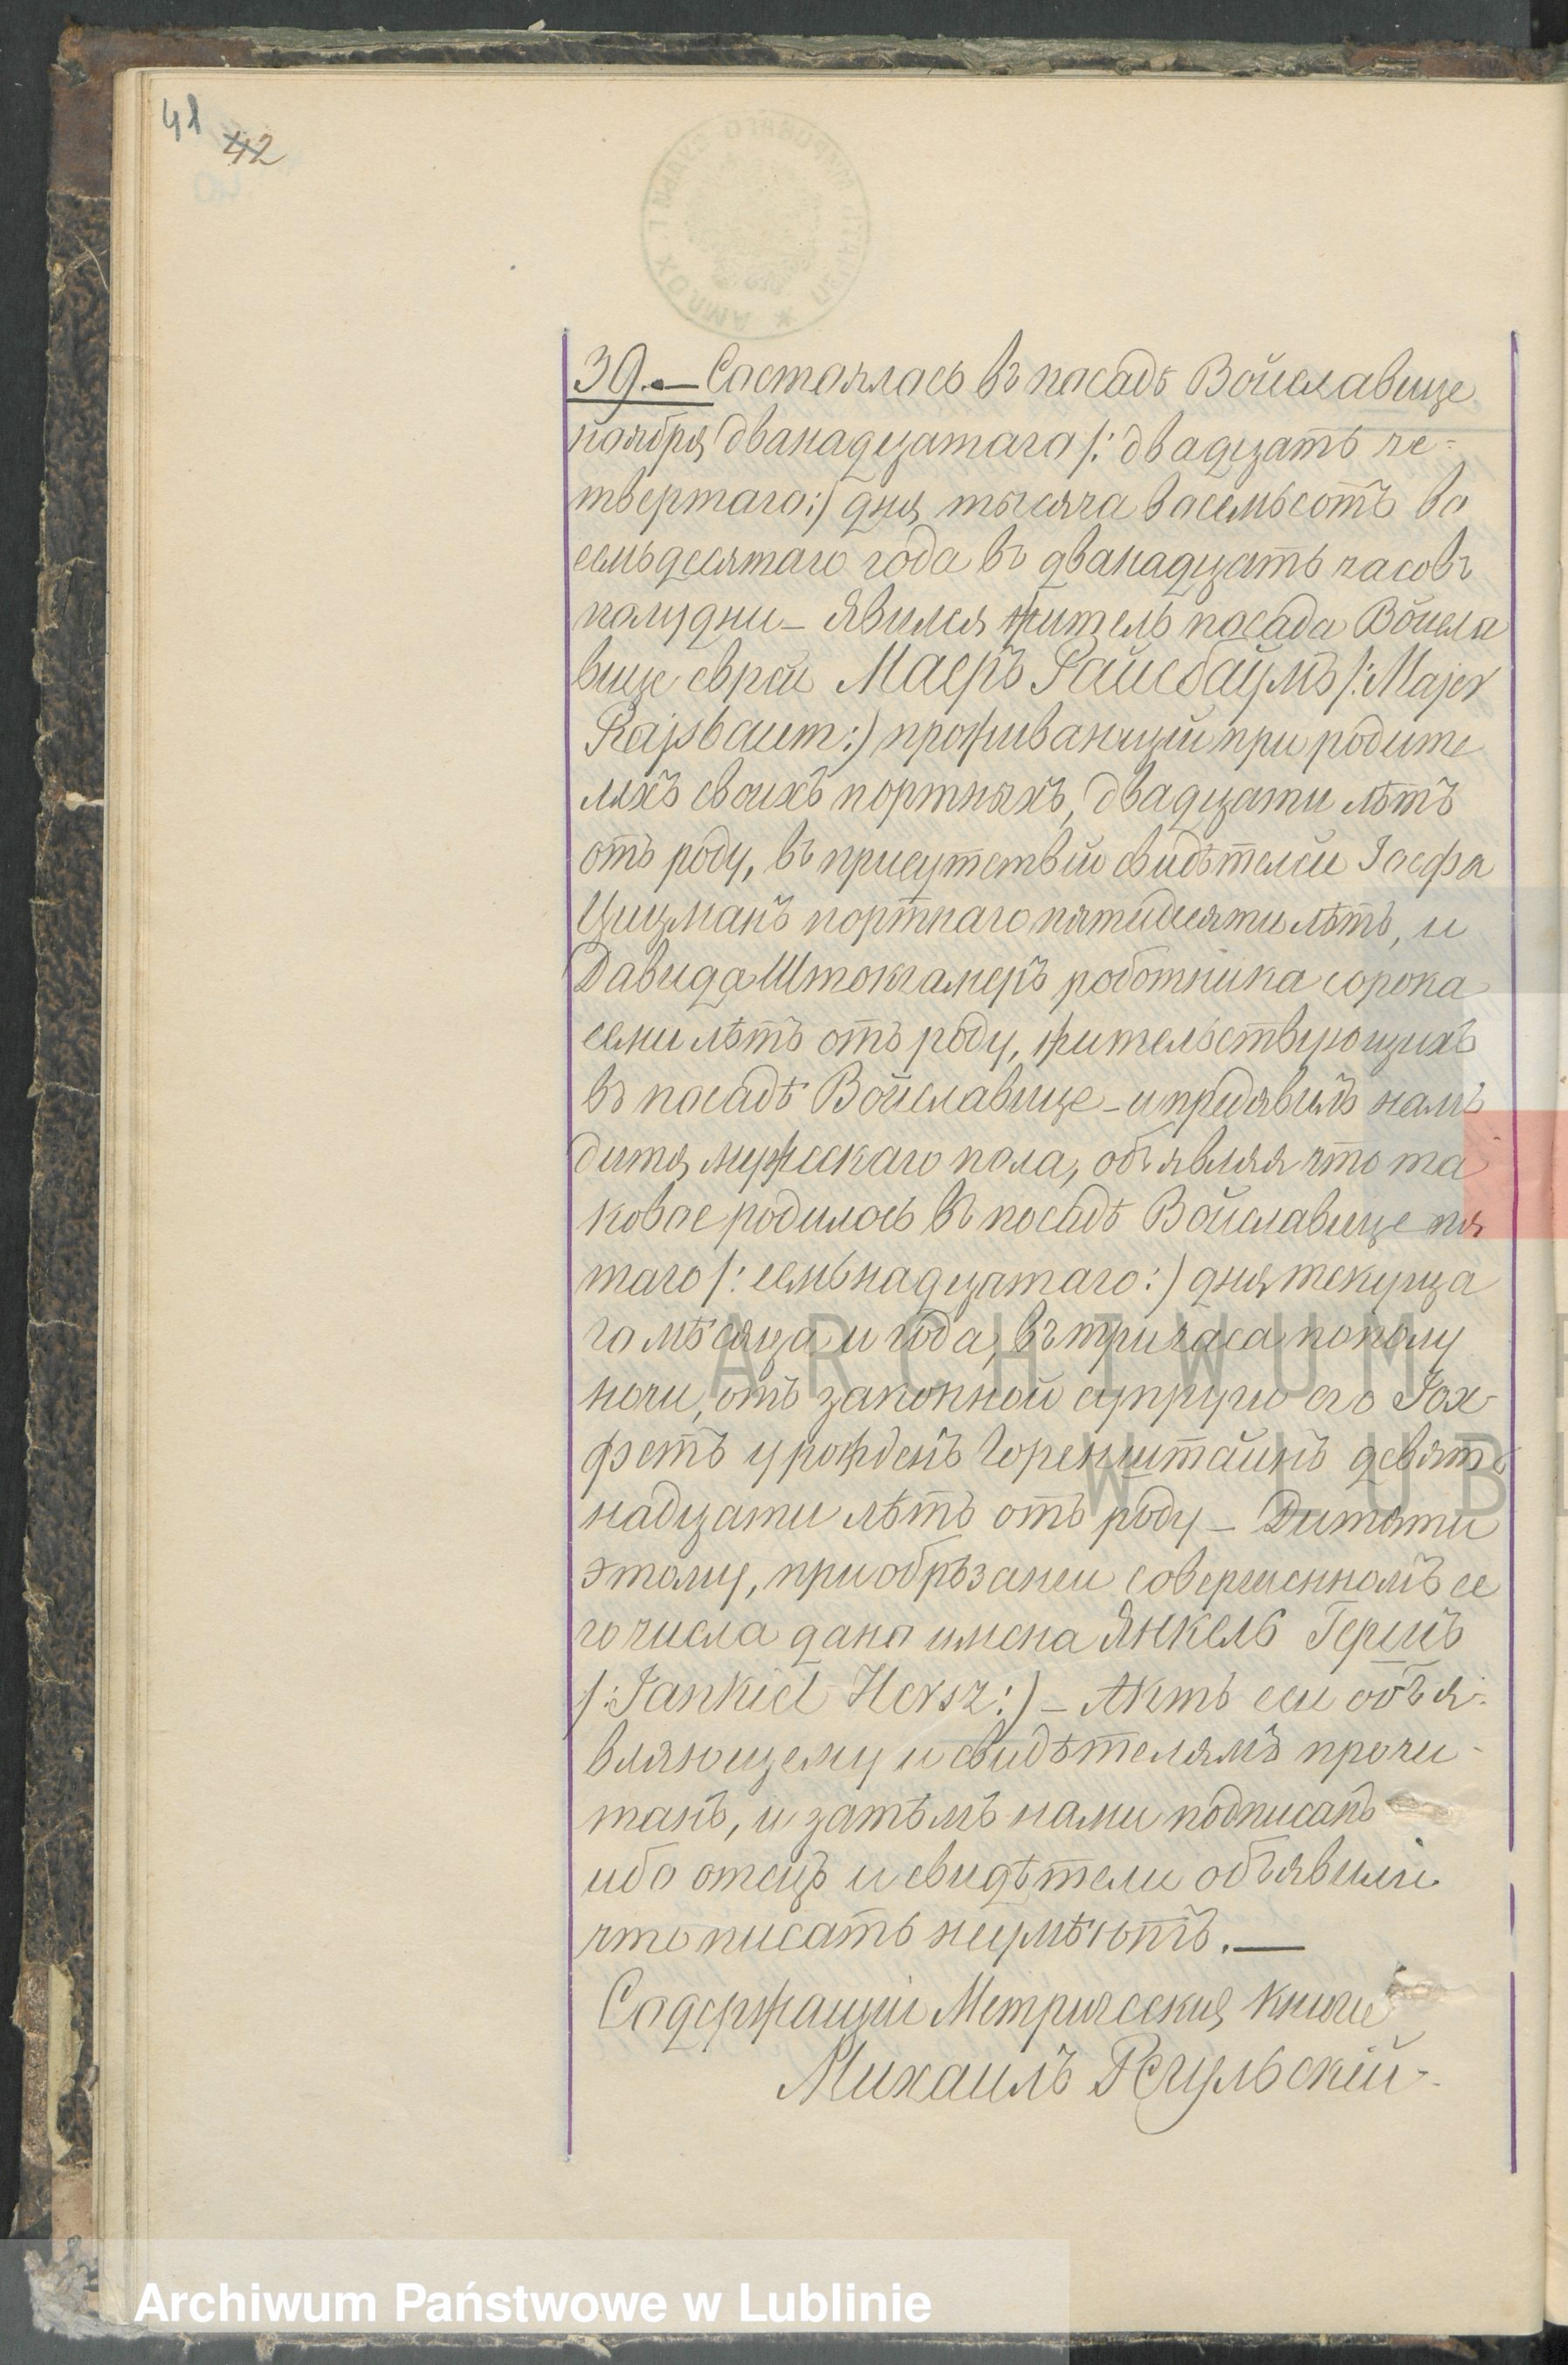 41
42
39.— Состоялось въ посадѣ Войславице
ноября двaнадцатаго /: двадцать че-
твертаго :/ дня тысяча восемьсотъ во
семьдесятаго года въ двaнадцать часовъ
полудни — Явился житель посада Войсла
вице еврей Маеръ Райсбаумъ /: Majer
Rajsbaum :/ проживающій при родите
ляхъ своихъ портныхъ, двадцати лѣтъ
отъ роду, въ присутствіи свидѣтелей Іосфа
Цицманъ портнаго пятидесяти лѣтъ, и
Давида Штокгамеръ роботника сорока
семи лѣтъ отъ роду, жительствующихъ
въ посадѣ Войславице — и предявилъ намъ
дитя мужескаго пола, объявляя что та
ковое родилось въ посадѣ Войславице пя
таго /: семьнадцатаго :/ дня текуща
го мѣсяца и года, въ три часа пополу
ночи, отъ законной супруги его Іох-
фетъ урожденъ Горенштайнъ девят
надцати лѣтъ отъ роду — Дитяти
этому, при обрѣзаніи совершенномъ се
го числа дано имена Янкель Гершъ
/: Jankiel Hersz :/ — Актъ сей объя-
вляющему и свидѣтелямъ прочи-
танъ, и затѣмъ нами подписанъ
ибо отецъ и свидѣтели объявили
что писать неумѣютъ. —
Содержащій Метрическия книги
Михаилъ
ARCHIWUM
W LUBL
Archiwum Państwowe w Lublinie